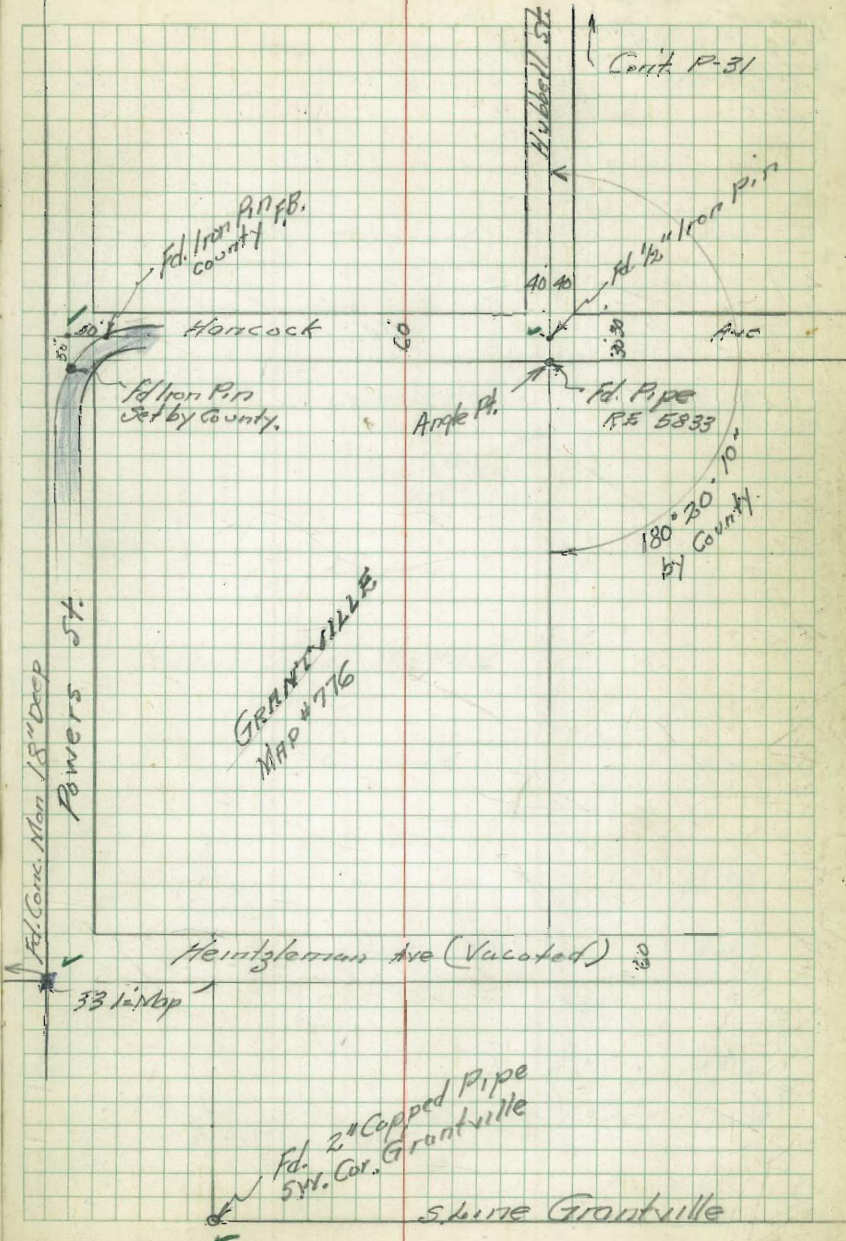 Hubbell St.
Cont. P-31
Fd. Iron Pin F.B.
County
Fd. 1/2" Iron Pin
40' 40'
50'
50'
Hancock
60'
30' 30'
Ave
Fd Iron Pin
Set by County.
Angle Pt.
Fd. Pipe
RE 5833
180° 20' 10"
by County.
GRANTVILLE
MAP #776
Powers St.
Fd. Conc. Mon. 18" Deep
Heintzleman Ave (Vacated)
60'
Map
Fd. 2" Capped Pipe
SW. Cor. Grantville
S. Line Grantville